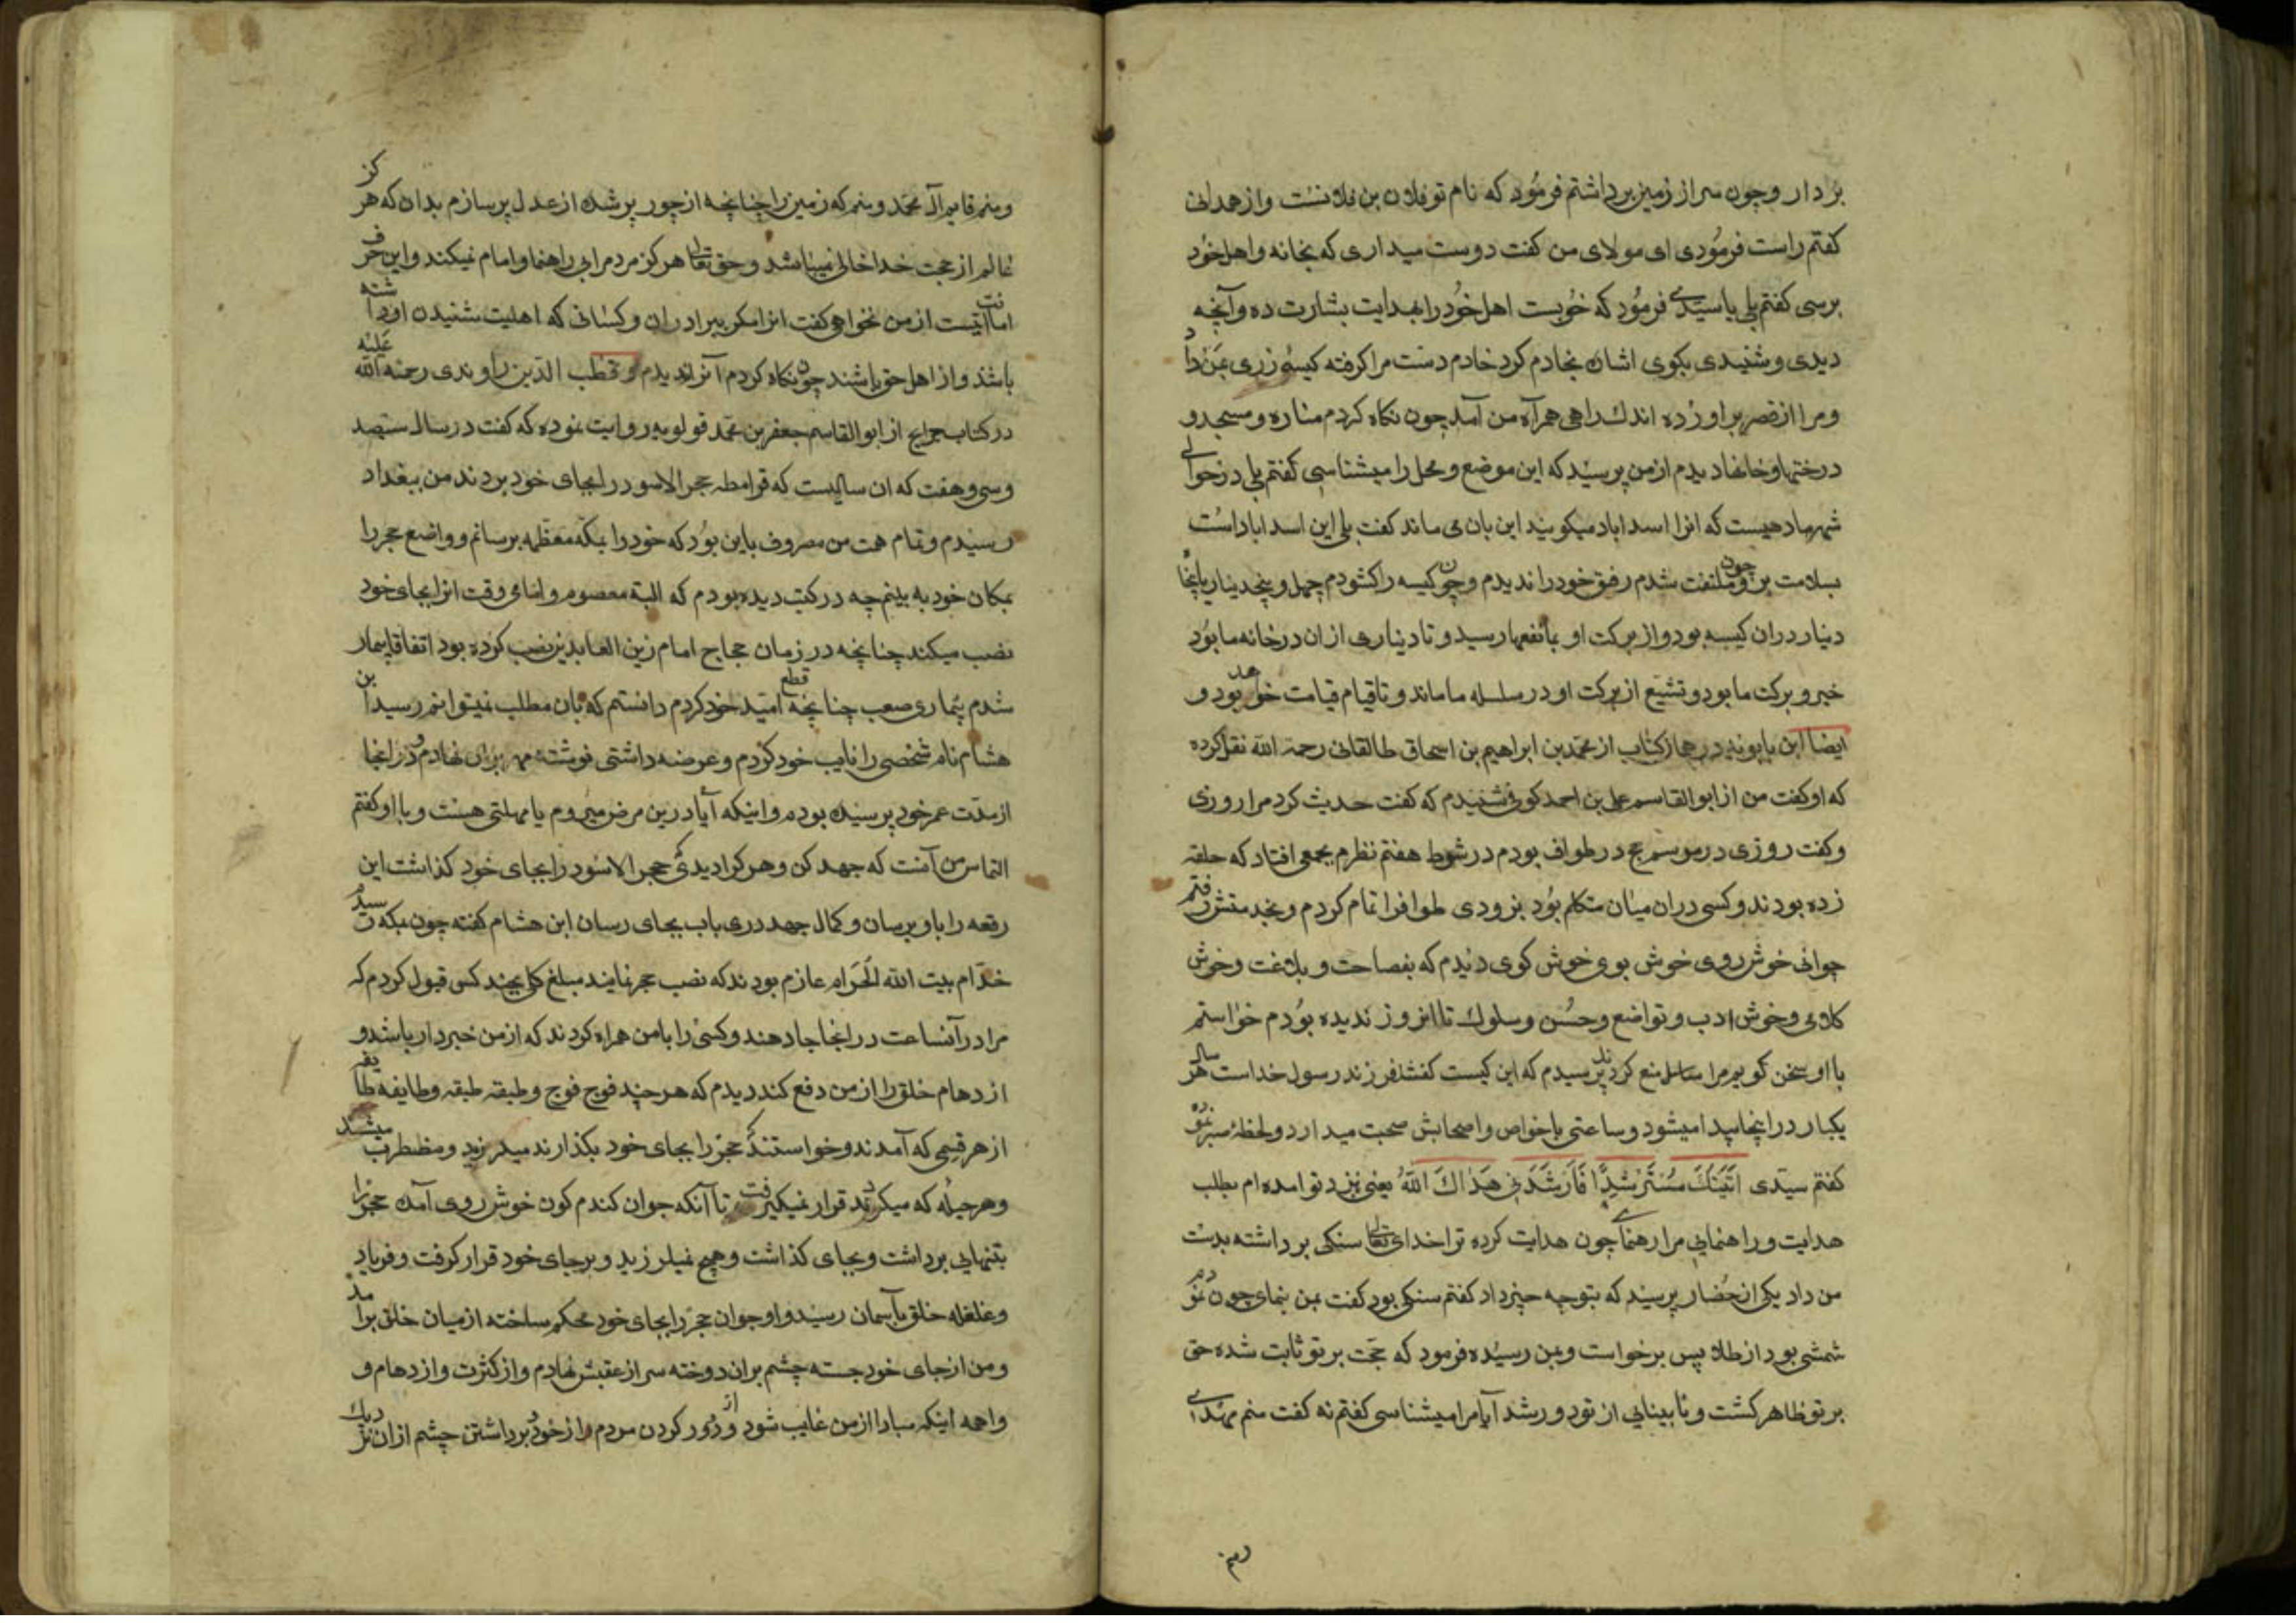 بردار و چون سر از زمین برداشتم فرمود که نام تو فلان بن فلانست و از همدانی
کفتم راست فرمودی ای مولای من کفت دوست میداری که بخانه و اهل خود
برسی کفتم بلی یا سیدی فرمود که خوبست اهل خود را بهدایت بشارت ده و آنچه
دیدی و شنیدی بکوی اشان بخادم کرد خادم دست مرا کرفته کیسهٔ زری بمن داد
و مرا از قصر براورده اندک راهی همراه من آمد چون نکاه کردم مناره و مسجد و
درختها و خانها دیدم از من پرسید که این موضع و محل را میشناسی کفتم بلی در حوالی
شهر ما دهیست که انرا اسداباد میکویند این بان می ماند کفت بلی این اسداباد است
بسلامت برو چون ملتفت شدم رفیق خود را ندیدم و چون کیسه را کشودم چهل و پنجدینار یا پنجاه
دینار دران کیسه بود و از برکت او بما نفعها رسید و تا دیناری ازان در خانه ما بود
خیر و برکت ما بود و تشیع از برکت او در سلسله ما ماند و تا قیام قیامت خواهد بود و
ایضا ابن بابویه در همان کتاب از محمد بن ابراهیم بن اسحاق طالقانی رحمة الله نقل کرده
که او کفت من از ابوالقاسم علی بن احمد کوفی شنیدم که کفت حدیث کرد مرا روزی
و کفت روزی در موسم حج در طواف بودم در شوط هفتم نظرم بجمعی افتاد که حلقه
زده بودند و کسی دران میان متکلم بود بزودی طوافرا تمام کردم و بخدمتش رفتم
جوانی خوش روی خوش بوی خوش کوی دیدم که بفصاحت و بلاغت و خوش
کلامی و خوش ادب و تواضع و حسن و سلوک تا انروز ندیده بودم خواستم
با او سخن کویم مرا منع کردند پرسیدم که این کیست کفتند فرزند رسول خداست هر سال
یکبار در اینجا پیدا میشود و ساعتی با خواص و اصحابش صحبت میدارد و لحظهٔ
کفتم سیدی اَتَیتُکَ مُستَرشِدًا فَاَرشِدنِی هَداکَ اللهُ یعنی نزد تو امده ام بطلب
هدایت و راهنمایی مرا رهنمای چون هدایت کرده ترا خدای تعالی سنکی برداشته بدست
من داد یکی از حضار پرسید که بتو چه چیز داد کفتم سنکی بود کفت بمن بنمای چون نمودم
شمشی بود از طلا پس برخواست و بمن رسیده فرمود که حجت بر تو ثابت شده حق
بر تو ظاهر کشت و نابینایی از تو دور شد آیا مرا میشناسی کفتم نه کفت منم مهدی
ومنم
ومنم قایم آل محمد و منم که زمین را چنانچه از جور پر شده از عدل پر سازم بدان که هرکز
عالم از حجت خدا خالی نمیباشد و حق تعالی هرکز مردم را بی راهنما و امام نمیکند و این حرف
امانتیست از من نخواهی کفت انرا مکر ببرادران و کسانی که اهلیت شنیدن او داشته
باشند و از اهل حق باشند چون نکاه کردم آنرا ندیدم و قطب الدین راوندی رحمة الله علیه
در کتاب جرایح از ابوالقاسم جعفر بن محمد قولویه روایت نموده که کفت در سال سیصد
و سی و هفت که ان سالیست که قرامطه حجر الاسود را بجای خود بردند من ببغداد
رسیدم و تمام همت من مصروف باین بود که خود را بمکه معظمه برسانم و واضع حجر را
بمکان خود به بینم چه در کتب دیده بودم که البته معصوم و امام وقت انرا بجای خود
نصب میکند چنانچه در زمان حجاج امام زین العابدین نصب کرده بود اتفاقا بیمار
شدم بیماری صعب چنانچه قطع امید خود کردم دانستم که بان مطلب نمیتوانم رسید ابن
هشام نام شخصی را نایب خود کردم و عرضه داشتی نوشته مهر بران نهادم و در انجا
از مدت عمر خود پرسیده بودم و اینکه آیا درین مرض میروم یا مهلتی هست و با او کفتم
التماس من آنست که جهد کن و هر کرا دیدی که حجر الاسود را بجای خود کذاشت این
رقعه را باو برسان و کمال جهد دری باب بجای رسان ابن هشام کفته چون بمکه رسید
خدام بیت الله الحرام عازم بودند که نصب حجر نمایند مبلغ کلی بچند کس قبول کردم که
مرا در آنساعت در انجا جا دهند و کسی را با من همراه کردند که از من خبردار باشد و
ازدهام خلق را از من دفع کند دیدم که هر چند فوج فوج و طبقه طبقه و طایفه طایفه
از هر قسمی که آمدند و خواستند که حجر را بجای خود بکذارند میلرزید و مضطرب میشد
و هر حیله که میکردند قرار نمیکیرفت تا آنکه جوان کندم کون خوش روی آمد حجر را
بتنهایی برداشت و بجای کذاشت و هیچ نمیلرزید و برجای خود قرار کرفت و فریاد
و غلغله خلق بآسمان رسید و او جوان حجر را بجای خود محکم ساخته از میان خلق برامد
و من از جای خود جسته چشم بران دوخته سر از عقبش نهادم و از کثرت و ازدهام و
واهمه اینکه مبادا از من غایب شود و دور کردن مردم را از خود و برداشتن چشم ازان نزدیک